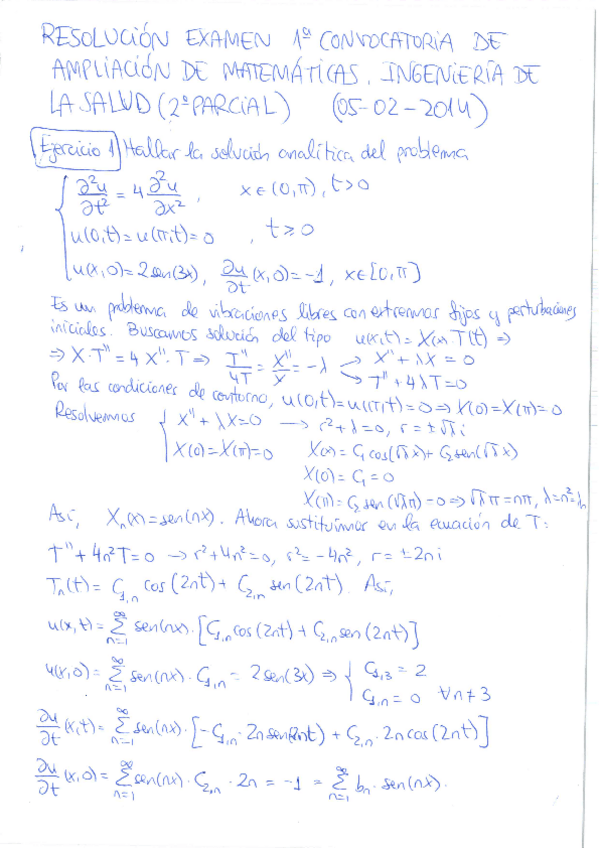 RESOLUCIÓN EXAMEN 1ª CONVOCATORIA DE
AMPLIACIÓN DE MATEMÁTICAS. INGENIERÍA DE
LA SALUD (2º PARCIAL) (05-02-2014)
Ejercicio 1 Hallar la solución analítica del problema
∂²u/∂t² = 4 ∂²u/∂x² , x∈(0,π), t>0
u(0,t)=u(π,t)=0 , t≥0
u(x,0)=2sen(3x), ∂u/∂t (x,0)=-1, x∈[0,π]
Es un problema de vibraciones libres con extremos fijos y perturbaciones
iniciales. Buscamos solución del tipo u(x,t)=X(x)·T(t) ⇒
⇒ X·T''=4 X''·T ⇒ T''/4T = X''/X = -λ → X''+λX=0
→ T''+4λT=0
Por las condiciones de contorno, u(0,t)=u(π,t)=0 ⇒ X(0)=X(π)=0
Resolvemos { X''+λX=0 → r²+λ=0, r=±√λ i
X(0)=X(π)=0 X(x)=C₁cos(√λx)+C₂sen(√λx)
X(0)=C₁=0
X(π)=C₂sen(√λπ)=0 ⇒ √λπ=nπ, λ=n²=λn
Así, Xn(x)=sen(nx). Ahora sustituimos en la ecuación de T:
T''+4n²T=0 → r²+4n²=0, r²=-4n², r=±2ni
Tn(t)= C₁,n cos(2nt)+C₂,n sen(2nt). Así,
u(x,t)= ∑_{n=1}^∞ sen(nx)·[C₁,n cos(2nt)+C₂,n sen(2nt)]
u(x,0)= ∑_{n=1}^∞ sen(nx)·C₁,n = 2sen(3x) ⇒ { C₁,3 = 2
C₁,n = 0 ∀n≠3
∂u/∂t (x,t)= ∑_{n=1}^∞ sen(nx)·[-C₁,n·2n sen(2nt)+C₂,n·2n cos(2nt)]
∂u/∂t (x,0)= ∑_{n=1}^∞ sen(nx)·C₂,n·2n = -1 = ∑_{n=1}^∞ bn·sen(nx).